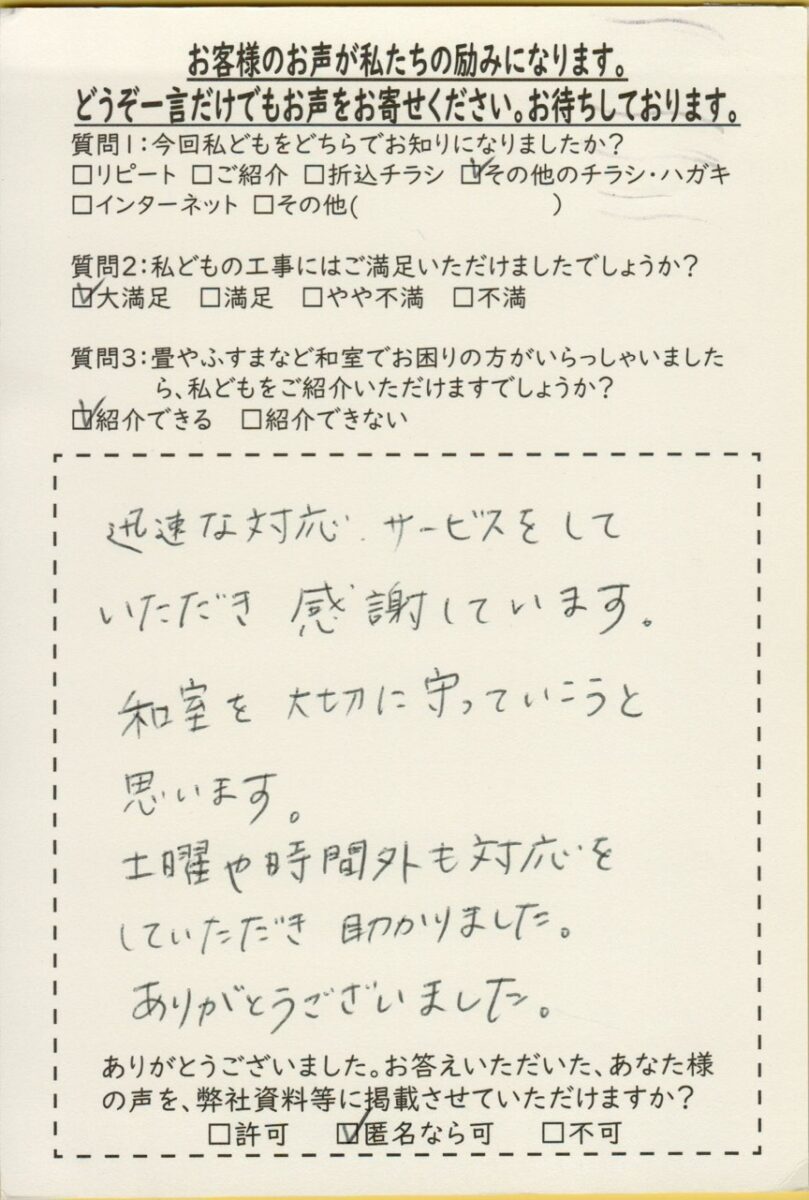 お客様のお声が私たちの励みになります。
どうぞ一言だけでもお声をお寄せください。お待ちしております。
質問1:今回私どもをどちらでお知りになりましたか?
□リピート □ご紹介 □折込チラシ ☑その他のチラシ・ハガキ
□インターネット □その他( )
質問2:私どもの工事にはご満足いただけましたでしょうか?
☑大満足 □満足 □やや不満 □不満
質問3:畳やふすまなど和室でお困りの方がいらっしゃいました
ら、私どもをご紹介いただけますでしょうか?
☑紹介できる □紹介できない
迅速な対応、サービスをして
いただき 感謝しています。
和室を 大切に守っていこうと
思います。
土曜や時間外も対応を
していただき 助かりました。
ありがとうございました。
ありがとうございました。お答えいただいた、あなた様
の声を、弊社資料等に掲載させていただけますか?
□許可 ☑匿名なら可 □不可